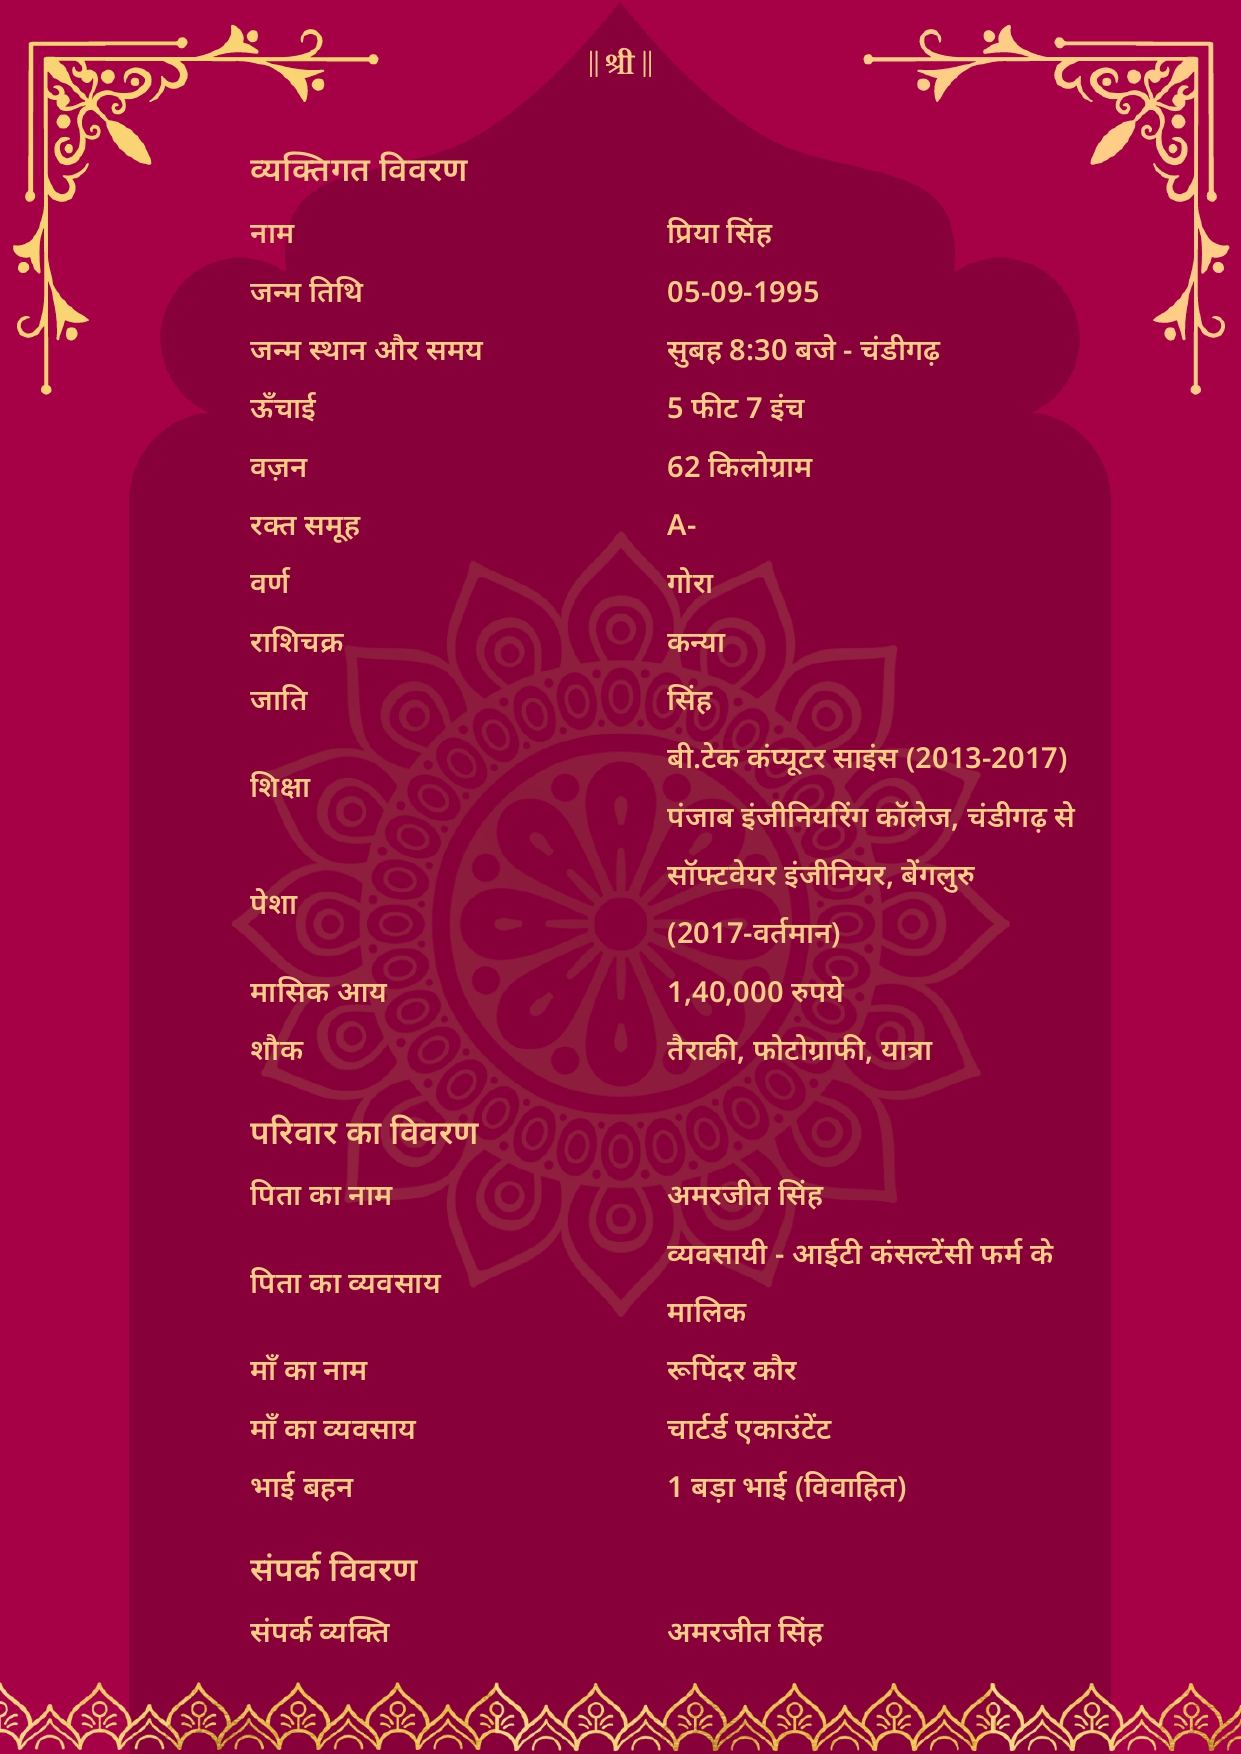 || श्री ||
व्यक्तिगत विवरण
नाम प्रिया सिंह
जन्म तिथि 05-09-1995
जन्म स्थान और समय सुबह 8:30 बजे - चंडीगढ़
ऊँचाई 5 फीट 7 इंच
वज़न 62 किलोग्राम
रक्त समूह A-
वर्ण गोरा
राशिचक्र कन्या
जाति सिंह
शिक्षा
बी.टेक कंप्यूटर साइंस (2013-2017)
पंजाब इंजीनियरिंग कॉलेज, चंडीगढ़ से
पेशा
सॉफ्टवेयर इंजीनियर, बेंगलुरु
(2017-वर्तमान)
मासिक आय 1,40,000 रुपये
शौक तैराकी, फोटोग्राफी, यात्रा
परिवार का विवरण
पिता का नाम अमरजीत सिंह
पिता का व्यवसाय
व्यवसायी - आईटी कंसल्टेंसी फर्म के
मालिक
माँ का नाम रूपिंदर कौर
माँ का व्यवसाय चार्टर्ड एकाउंटेंट
भाई बहन 1 बड़ा भाई (विवाहित)
संपर्क विवरण
संपर्क व्यक्ति अमरजीत सिंह